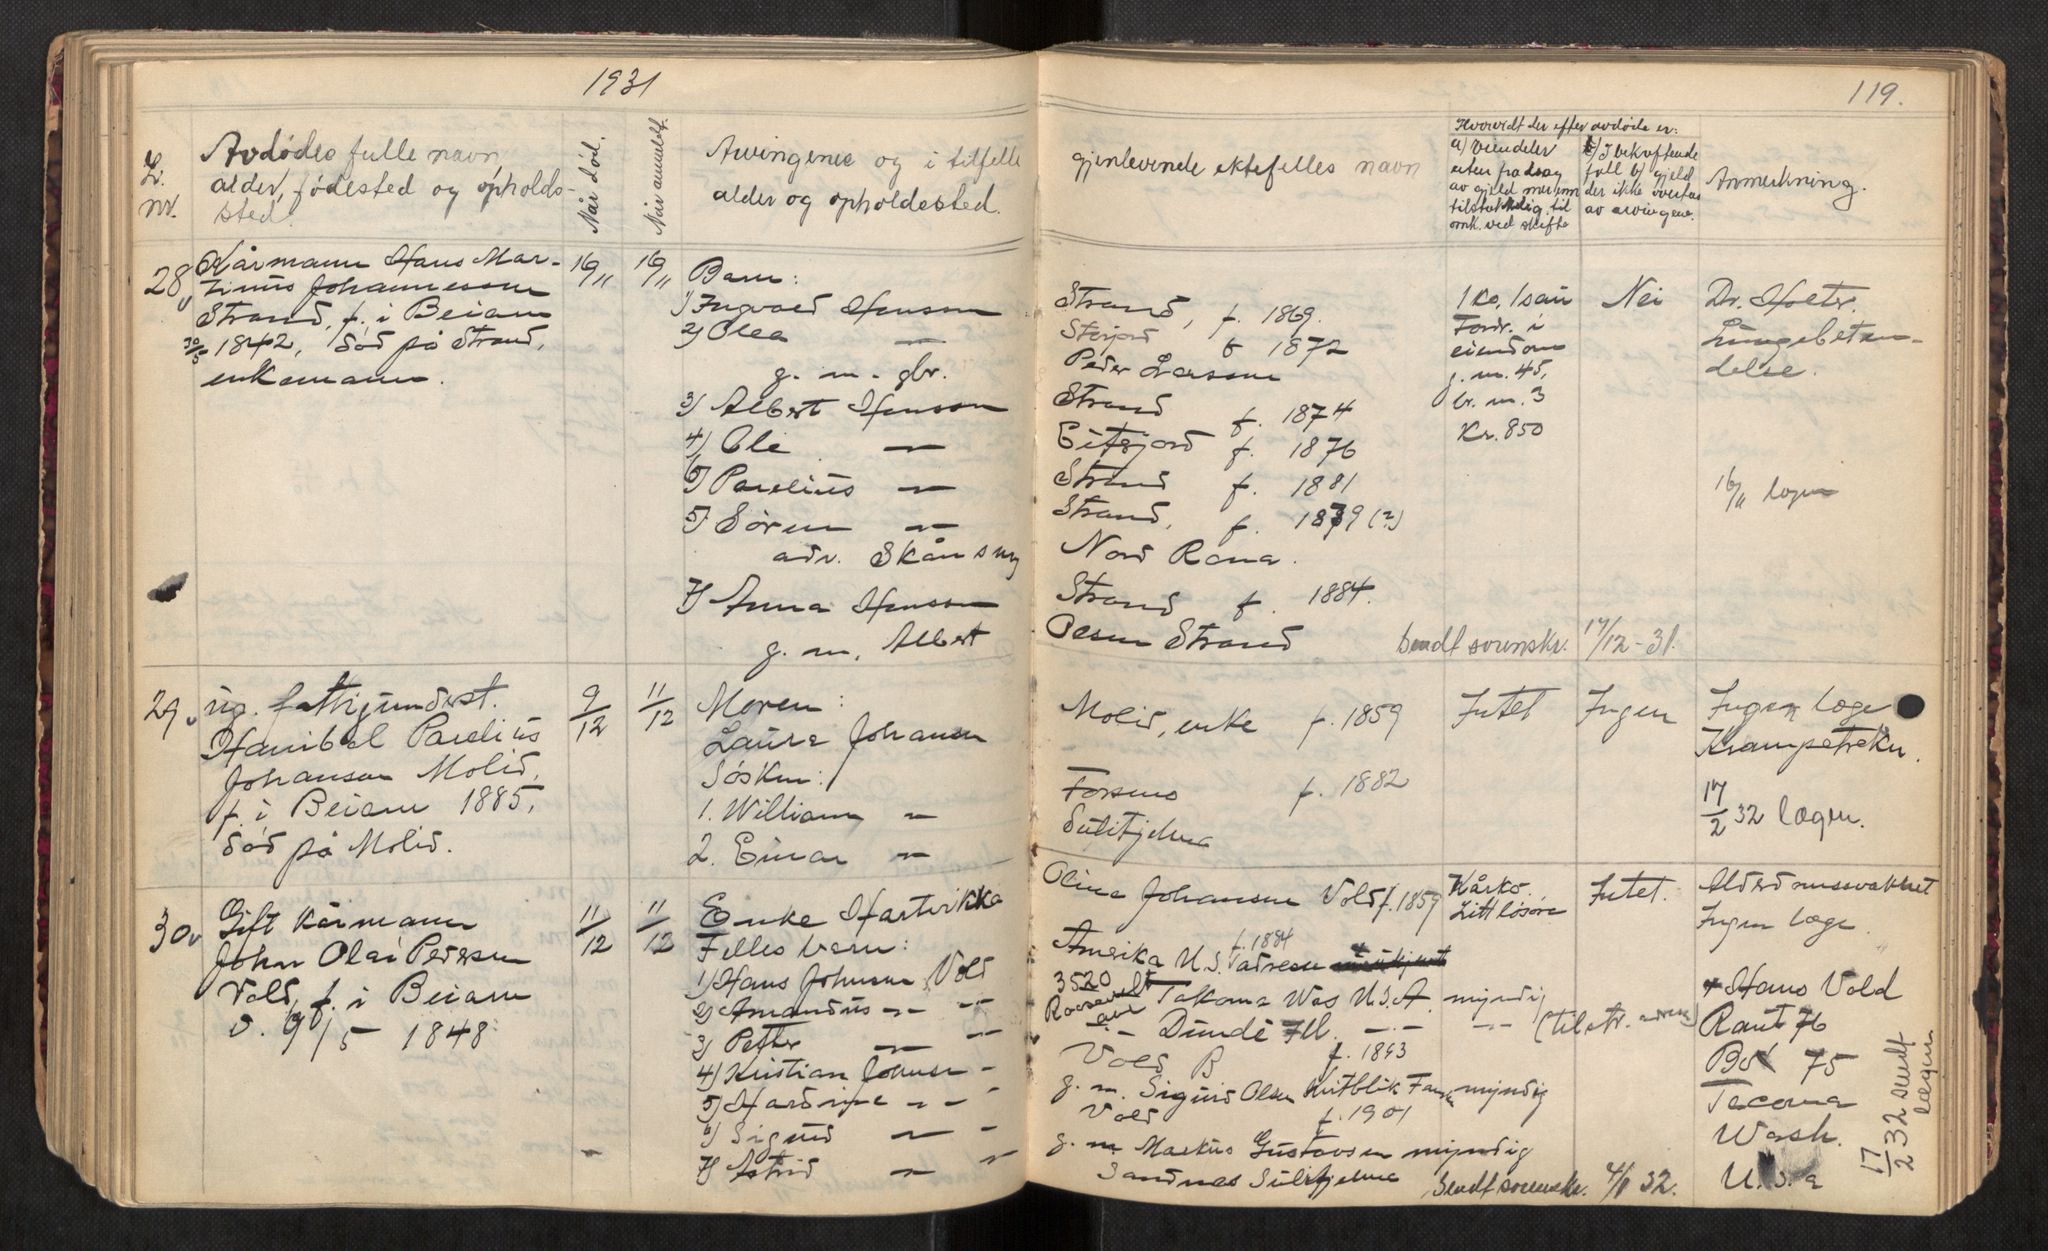 1931
Avdødes fulle navn,
alder, fødested og opholds-
sted.
Når død.
Når anmeldt.
Arvingenes og i tilfelle
alder og opholdested.
28
Kårmann Hans Mar-
tinus Johannessen
Strand, f. i Beiarn
30/5 1842, død på Strand,
enkemann.
16/11
16/11
Barn:
1) Ingvald Hansen
2) Olea —
g. m. gbr.
3) Albert Hansen
4) Ole —
6) Parelius —
5) Sören —
adr. Skånseng
7) Anna Hansen
g. m. Albert
29
ug. fattigunderst.
Hanibal Parelius
Johansen Molid,
f. i Beiarn 1885,
død på Molid.
9/12
11/12
Moren:
Laura Johansen
Søsken:
1. William —
2. Einar —
30
Gift kårmann
John Olai Pedersen
Vold, f. i Beiarn
d. 9/5 1848
11/12
11/12
Enke Hartvikka
Felles barn:
1) Hans Johnsen Vold
2) Amandus — —
3) Petter — —
4) Kristian Johnsen —
5) Hardine — —
6) Sigurd — —
7) Astrid — —
119.
gjenlevende ektefelles navn
Hvorvidt der efter avdøde er:
a) Eiendeler
eiter fradrag
av gjeld mer enn
tilstrekkelig til
omk. ved skifte
b) I bekreftende
fall b) gjeld
der ikke overtas
av arvingene.
Anmerkning.
Strand, f. 1869.
Storjord f 1872
Peder Larssen
Strand f. 1874
Eitsjord f. 1876
Strand f. 1881
Strand, f. 1879 (?)
Nord Rana.
Strand f. 1884.
Olsen Strand
1 ko, 1 sau
Fordr. i
eiendom
g. nr. 45,
br. nr. 3
Kr. 850
Nei
Dr. Holter.
Lungebeten-
delse.
16/11 legen
Sendt sorenskr. 17/12-31.
Molid, enke f. 1859
Forsmo f. 1882
Sulitjelma
Intet
Ingen
Ingen læge
Krampetrekn.
17/2 32 lægen.
Olina Johansen Vold f. 1859
Kårko.
Litt løsøre
Intet.
Alderdomssvakhet
Ingen læge.
f. 1884
Amerika U. S.
3520
Roosevelt
ave
Takoma Was U.S.A. myndig
— Dunde Ill. — — (tilstr. adress)
Vold B f. 1893
g. m. Sigurd Olsen Hvitblik Fauske myndig
Vold f. 1901
g. m. Markus Gustavsen myndig
Sandnes Sulitjelma
Sendt sorenskr. 4/1 32.
Hans Vold
Raut 76
Box 75
Tecoma
Wash.
U.S.a
17/2 32 sendt
lægen